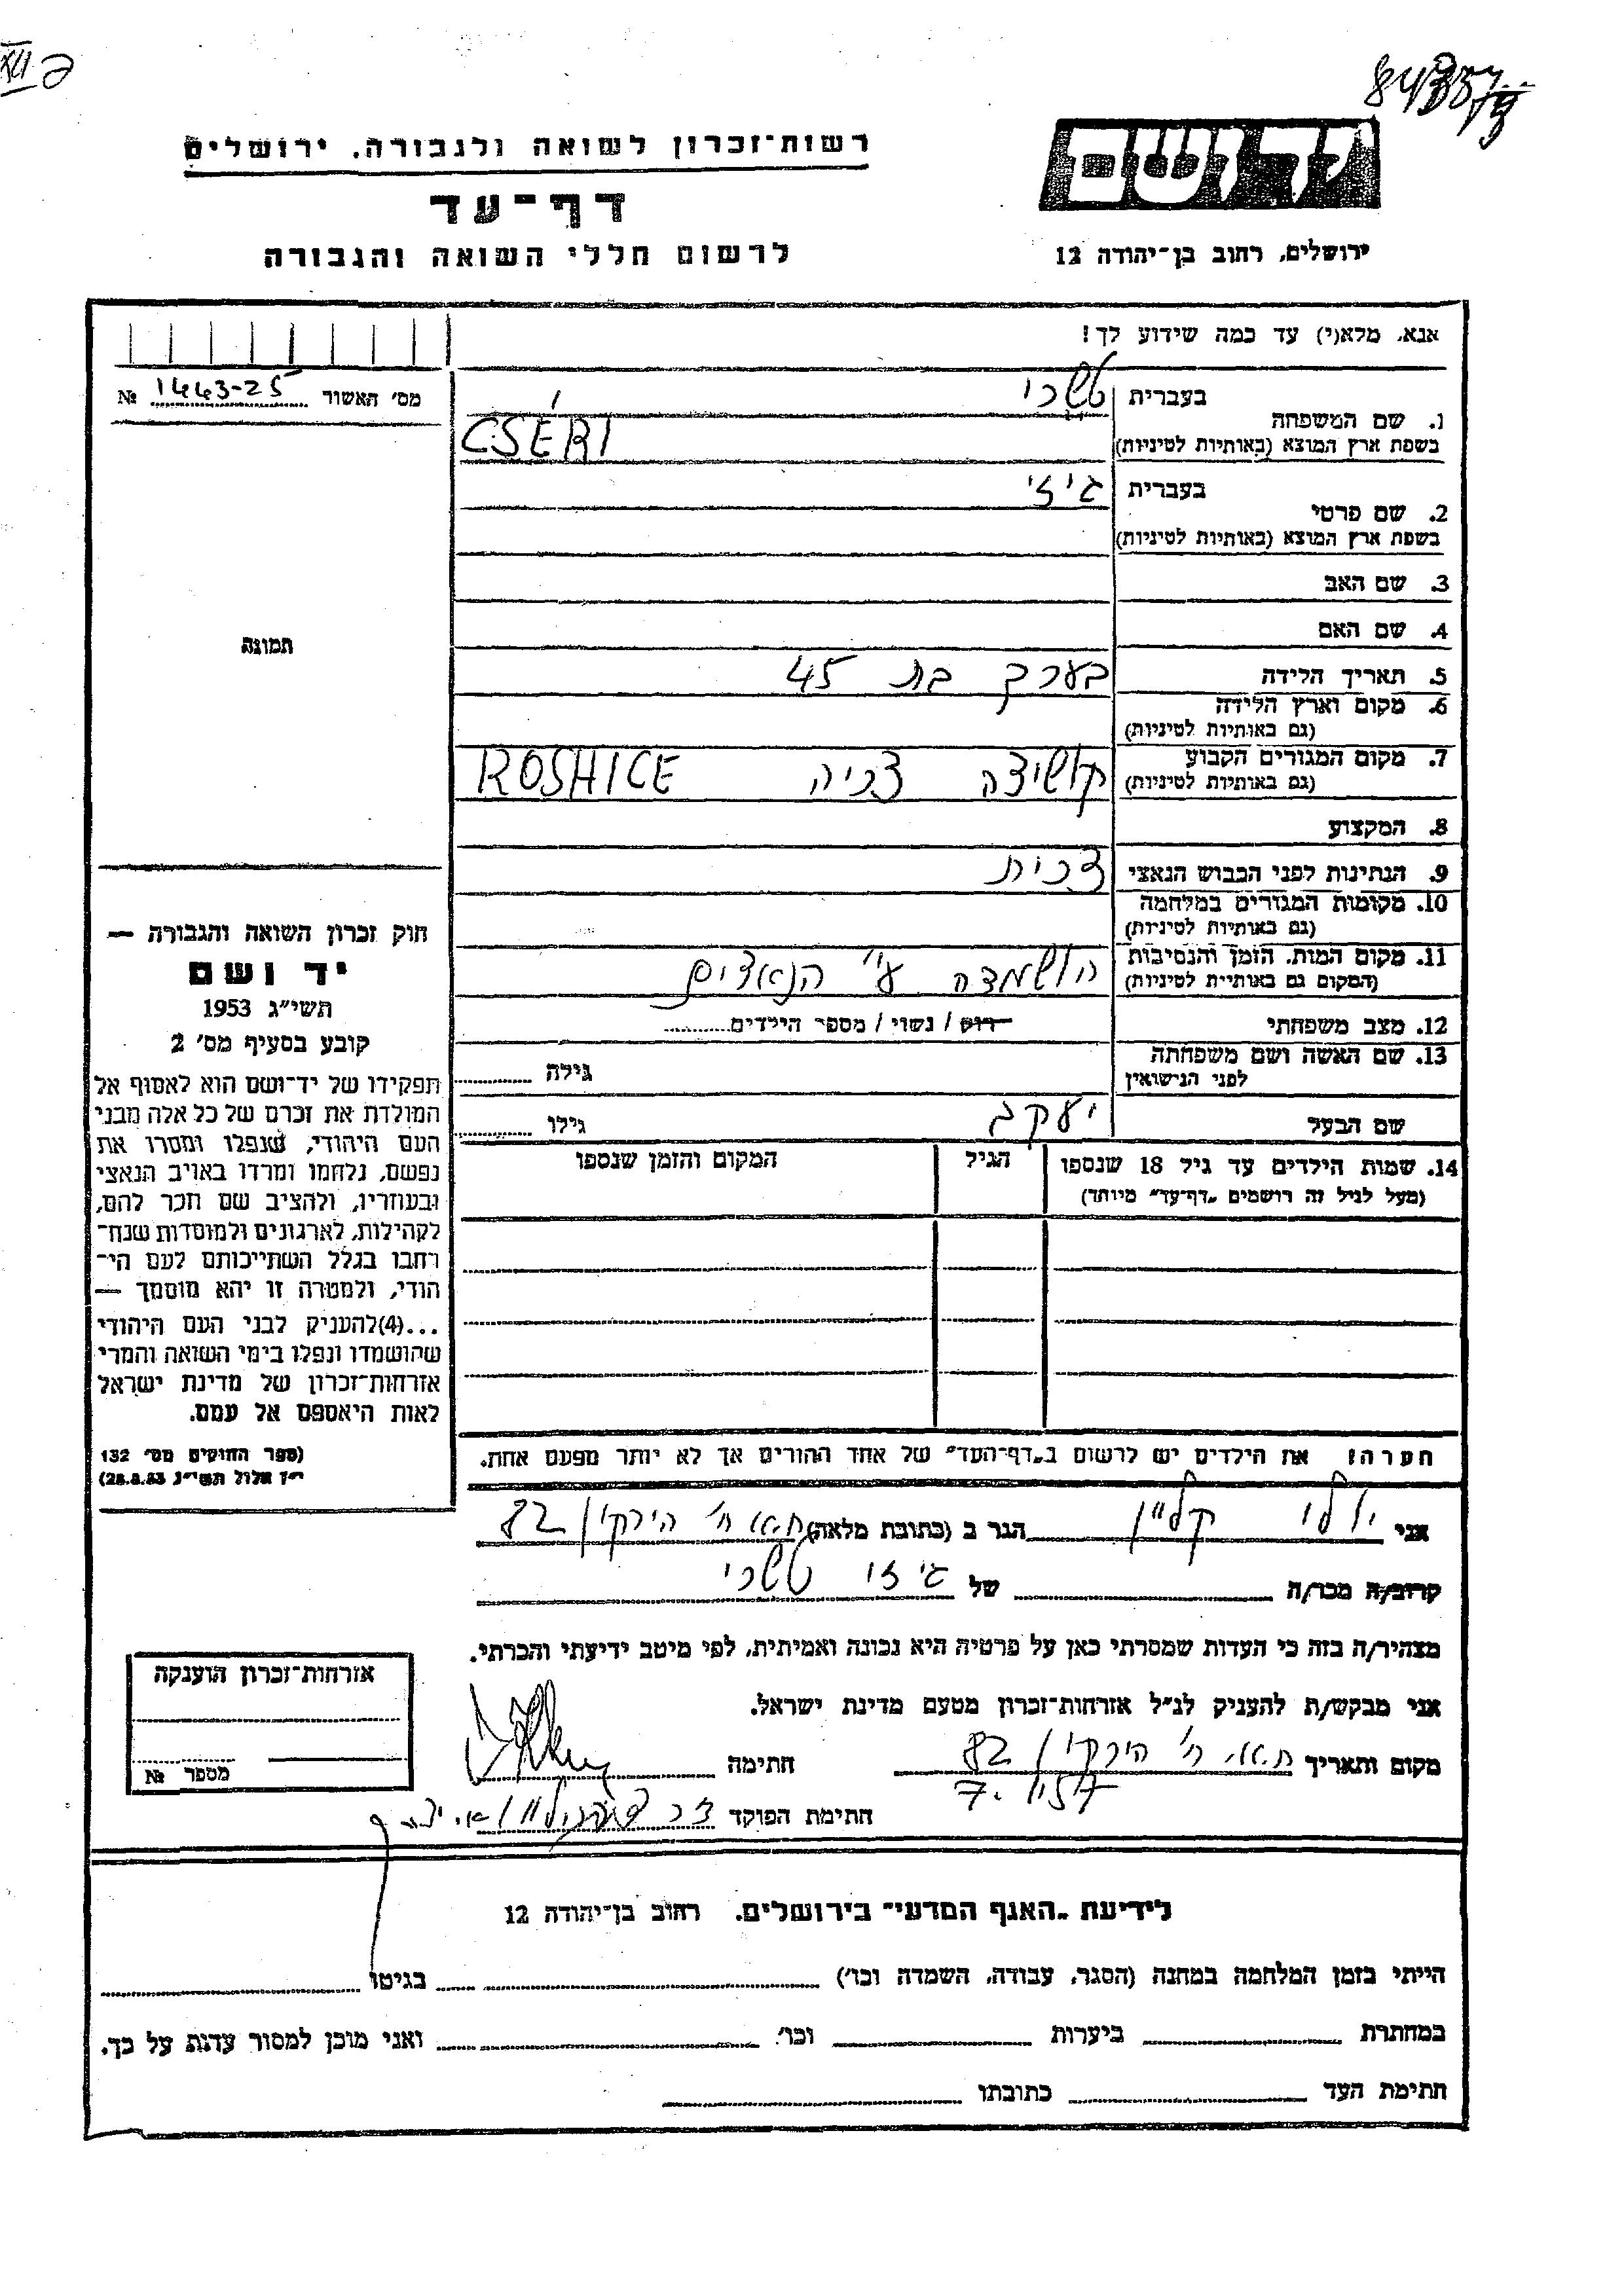 רשות־זכרון לשואה ולגבורה, ירושלים
דף־עד
לרשום חללי השואה והגבורה
יד ושם
ירושלים, רחוב בן־יהודה 12
אנא, מלא(י) עד כמה שידוע לך!
מס' האשור 1443-25 №
1. שם המשפחה
בעברית טשרי
בשפת ארץ המוצא (באותיות לטיניות) CSÉRI
2. שם פרטי
בעברית גיזי
בשפת ארץ המוצא (באותיות לטיניות)
3. שם האב
4. שם האם
5. תאריך הלידה בערך בת 45
6. מקום וארץ הלידה
(גם באותיות לטיניות)
7. מקום המגורים הקבוע
(גם באותיות לטיניות) קושיצה צכיה ROSHICE
8. המקצוע
9. הנתינות לפני הכבוש הנאצי צכית
10. מקומות המגורים במלחמה
(גם באותיות לטיניות)
11. מקום המות, הזמן והנסיבות
(המקום גם באותיות לטיניות) הושמדה ע"י הנאצים
12. מצב משפחתי רווק / נשוי / מספר הילדים
13. שם האשה ושם משפחתה
לפני הנישואין גילה
שם הבעל יעקב גילו
14. שמות הילדים עד גיל 18 שנספו
(מעל לגיל זה רושמים „דף־עד" מיוחד)
הגיל
המקום והזמן שנספו
הערה! את הילדים יש לרשום ב„דף־העד" של אחד ההורים אך לא יותר מפעם אחת.
תמונה
חוק זכרון השואה והגבורה —
יד ושם
תשי"ג 1953
קובע בסעיף מס' 2
תפקידו של יד־ושם הוא לאסוף אל
המולדת את זכרם של כל אלה מבני
העם היהודי, שנפלו ומסרו את
נפשם, נלחמו ומרדו באויב הנאצי
ובעוזריו, ולהציב שם וזכר להם,
לקהילות, לארגונים ולמוסדות שנח־
רבו בגלל השתייכותם לעם הי־
הודי, ולמטרה זו יהא מוסמך —
...(4)להעניק לבני העם היהודי
שהושמדו ונפלו בימי השואה והמרי
אזרחות־זכרון של מדינת ישראל
לאות היאספם אל עמם.
(ספר החוקים מס' 132
י"ז אלול תשי"ג 28.8.53)
אני קליין הגר ב (כתובת מלאה) ת.א. רח' הירקון 82
קרוב/ה מכר/ה של גיזי טשרי
מצהיר/ה בזה כי העדות שמסרתי כאן על פרטיה היא נכונה ואמיתית, לפי מיטב ידיעתי והכרתי.
אני מבקש/ת להעניק לנ"ל אזרחות־זכרון מטעם מדינת ישראל.
מקום ותאריך ת.א. רח' הירקון 82
חתימה
חתימת הפוקד
אזרחות־זכרון הוענקה
מספר №
לידיעת „האגף המדעי" בירושלים, רחוב בן־יהודה 12
הייתי בזמן המלחמה במחנה (הסגר, עבודה, השמדה וכו') בגיטו
במחתרת ביערות וכו' ואני מוכן למסור עדות על כך.
חתימת העד כתובתו